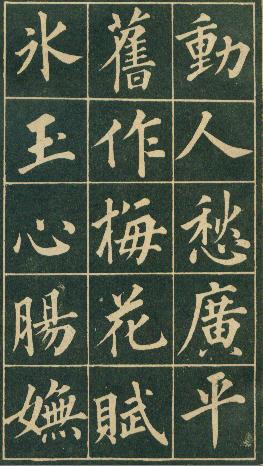 動人愁廣平
舊作梅花賦
氷玉心腸嫵